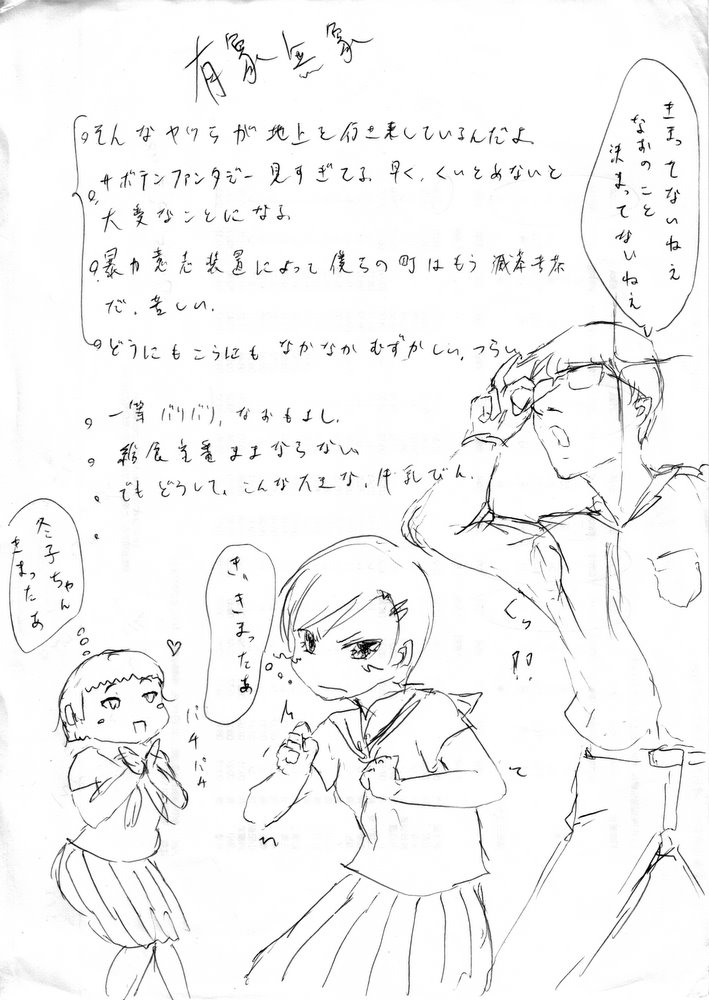 有象無象
そんなヤツらが地上を行き来しているんだよ
サボテンファンタジー見すぎてる。早く、くいとめないと
大変なことになる
暴力意志装置によって僕らの町はもう滅茶苦茶
だ。苦しい.
どうにもこうにも なかなか むずかしい。つらい
一等バリバリ。なおもよし.
ままならない
でもどうして。こんな大きな。牛乳びん.
きまってないねえ
なおのこと
決まってないねえ
くっ!!
き、きまったあ
冬子ちゃん
きまったあ
パチパチ